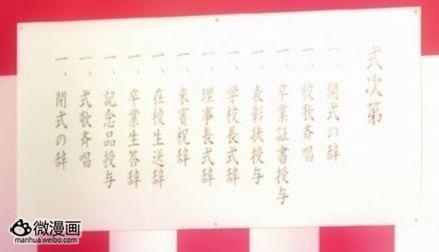 式次第
一、開式の辞
一、校歌斉唱
一、卒業証書授与
一、表彰状授与
一、学校長式辞
一、理事長式辞
一、来賓祝辞
一、在校生送辞
一、卒業生答辞
一、記念品授与
一、式歌斉唱
一、閉式の辞
微漫画
manhua.weibo.com